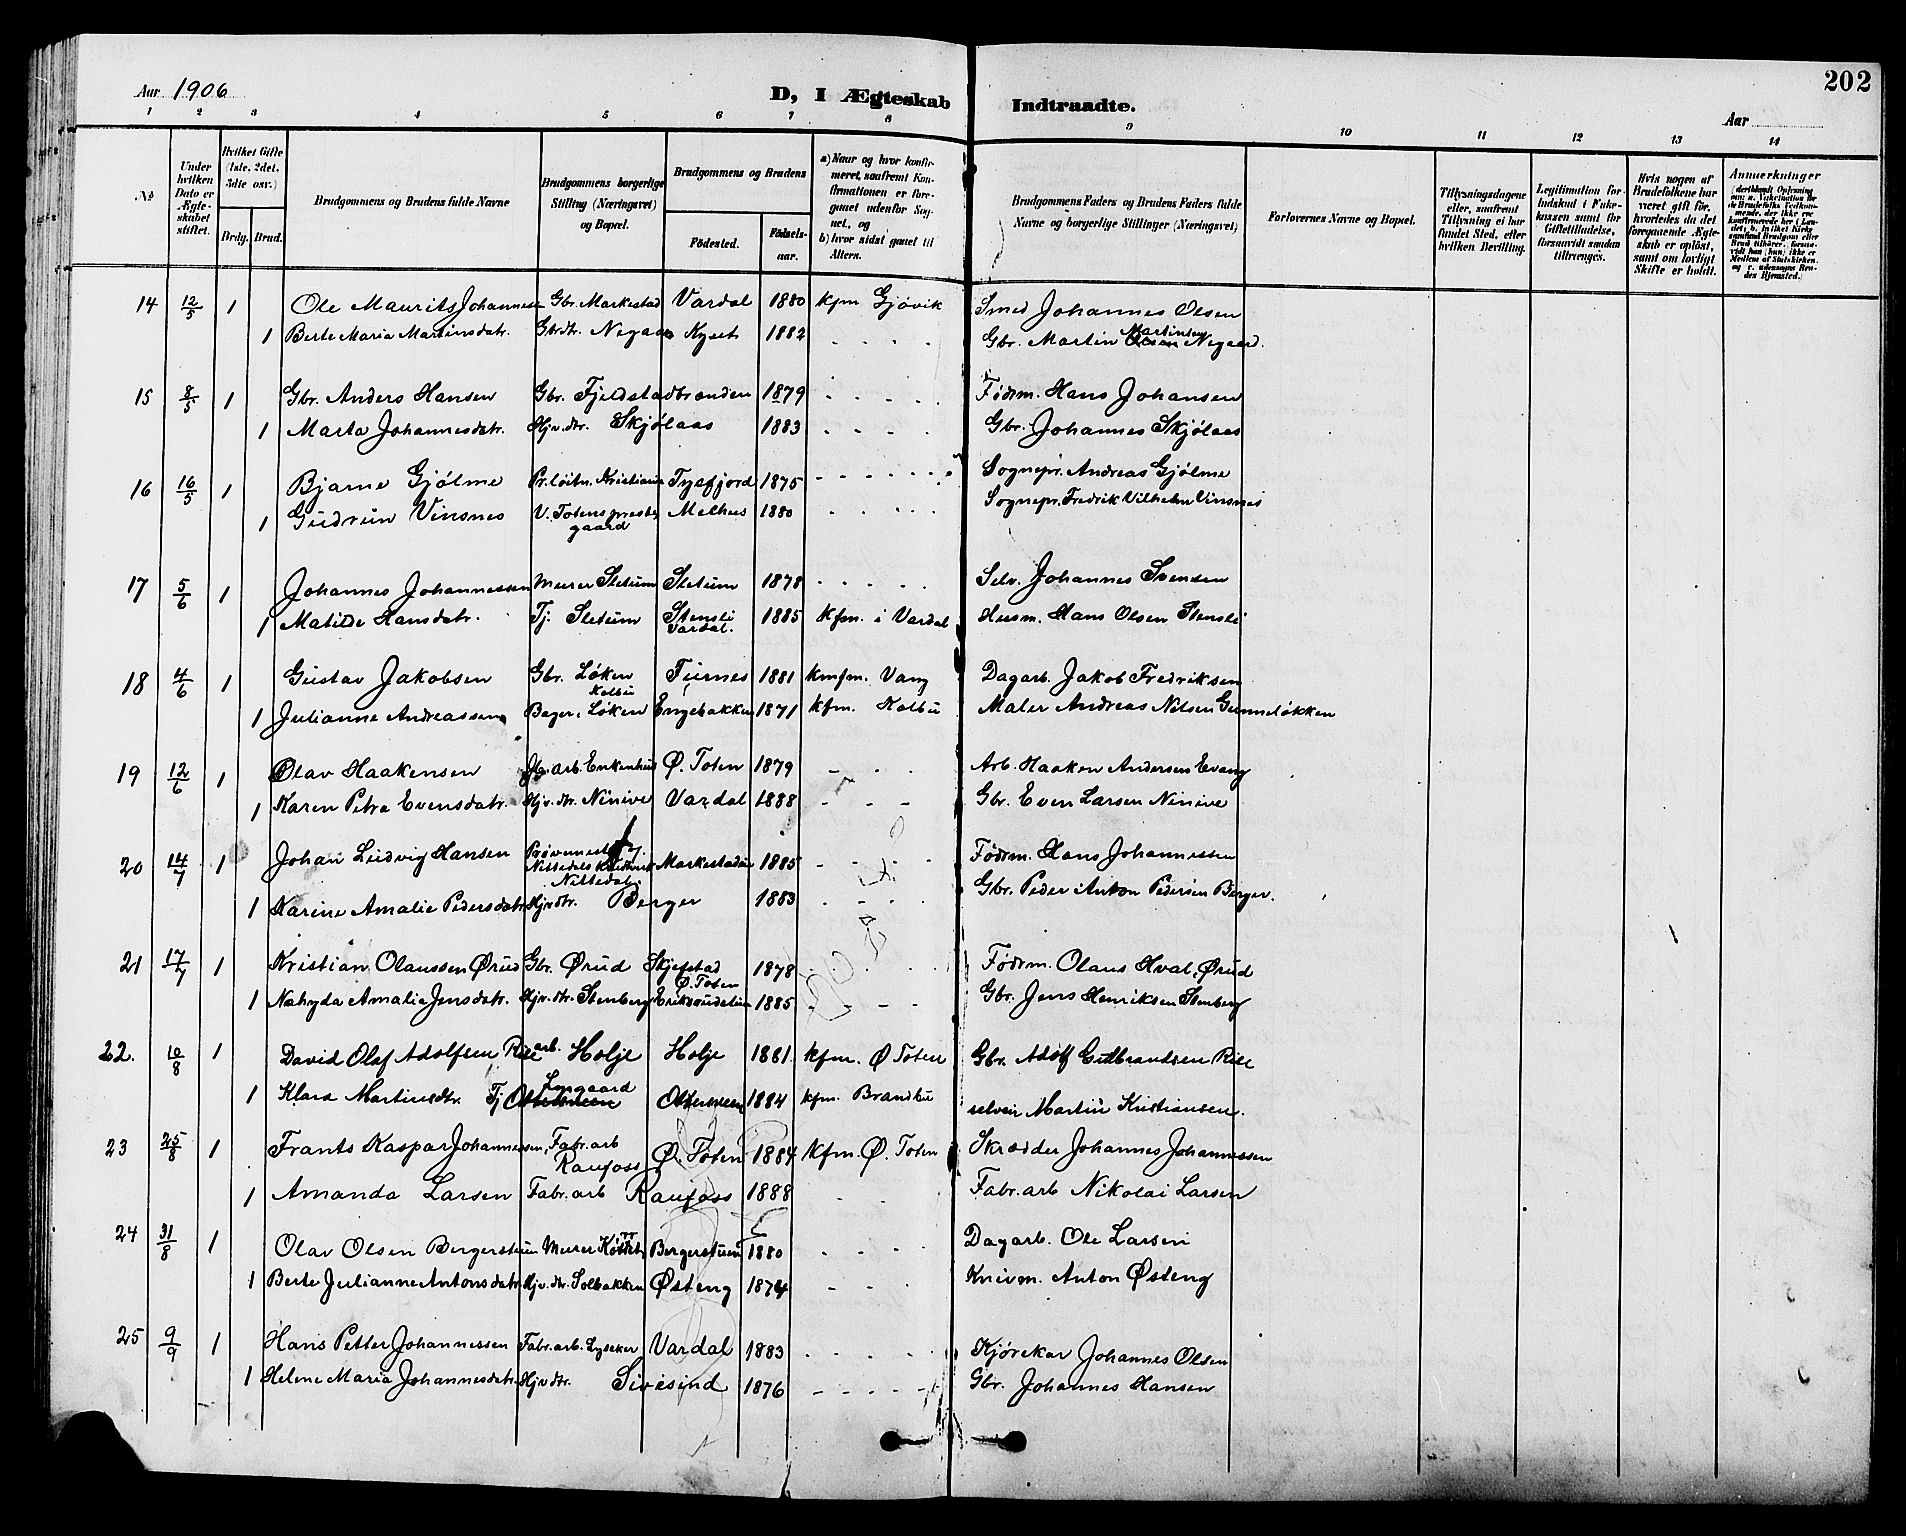 202
Aar 1906
D, I Ægteskab Indtraadte.
Aar
1 2 3 4 5 6 7 8 9 10 11 12 13 14
No
Under hvilken Dato er Ægteskabet stiftet.
Hvilket Gifte (1ste, 2det, 3die osv.)
Brdg. Brud.
Brudgommens og Brudens fulde Navne
Brudgommens borgerlige Stilling (Næringsvei) og Bopæl.
Brudgommens og Brudens
Fødested.
Fødselsaar.
a) Naar og hvor konfirmeret, saafremt Konfirmationen er foregaaet udenfor Sognet, og b) hvor sidst gaaet til Alters.
Brudgommens Faders og Brudens Faders fulde Navne og borgerlige Stillinger (Næringsvei)
Forlovernes Navne og Bopæl.
Tillysningsdagene eller, saafremt Tillysning ei har fundet Sted, efter hvilken Bevilling.
Legitimation for Indskud i Enkekassen samt for Giftetilladelse, forsaavidt saadan tiltrænges.
Hvis nogen af Brudefolkene har været gift før, hvorledes da det foregaaende Ægteskab er opløst, samt om lovligt Skifte er holdt.
Anmærkninger
14 12/5 1 Ole Maurits Johannesen Gbr. Markestad Vardal 1880 kfm Gjøvik Smed Johannes Olsen
1 Berte Maria Martinsdatr. Gbrdtr. Negaar Kyset 1882 - - - - Gbr. Martin Martinsen Negaard.
15 8/5 1 Gbr. Anders Hansen Gbr. Fjeldstadbrænden 1879 - - - - Fødrm. Hans Johansen
1 Marta Johannesdatr. Hjv.dtr. Skjølaas 1883 - - - - Gbr. Johannes Skjølaas
16 16/5 1 Bjarne Gjølme Pr.løitn. Kristiania Tysfjord 1875 - - - - Sognepr. Andreas Gjølme
1 Gudrun Vinsnes V. Totens prestegaard Melhus 1880 - - - - Sognepr. Fredrik Vilhelm Vinsnes
17 5/6 1 Johannes Johannessen Murer Sletum Sletum 1878 - - - - Selv. Johannes Svensen
1 Matilde Hansdatr. Tj. Sletum Stensli Vardal. 1885 kfm. i Vardal Husm. Hans Olsen Stensli
18 4/6 1 Gustav Jakobsen Gbr. Løken Kolbu Furnes 1881 kmfm. Vang Dagarb. Jakob Fredriksen
1 Julianne Andreassen Bager, Løken Engebakken 1871 kfm. Kolbu Maler Andreas Nilsen Gunneløkken
19 12/6 1 Olav Haakensen Jbr. arb. Enkenhus Ø. Toten 1879 - - - Arb. Haaken Andersen Evang
1 Karen Petra Evensdatr. Hjv.dtr. Ninive Vardal 1888 - - - Gbr. Even Larsen Ninive
20 14/7 1 Johan Ludvig Hansen Prøvemester Nittedals Krudtværk Nittedal. Markestadøe 1885 - - - - Fødrm. Hans Johannessen
1 Karine Amalie Pedersdatr. Hjv.dtr. Berger 1883 - - - - Gbr. Peder Anton Pedersen Berger.
21 17/7 1 Kristian Olaussen Ørud Gbr. Ørud Skjefstad Ø. Toten 1878 - - - - Fødrm. Olaus Hval, Ørud
1 Nahyda Amalie Jensdatr. Hjv.dtr. Stenberg Eriksrudstuen 1885 - - - Gbr. Jens Henriksen Stenberg
22. 10/8 1 David Olaf Adolfsen Rise arb. Holje Holje 1881. kfm. Ø Toten Gbr. Adolf Gulbrandsen Rise
1 Klara Martinsdtr. Tj Lysgaard Ottersveen 1884 kfm. Brandbu selveir Martin Kristiansen.
23 25/8 1 Frants Kaspar Johannessen, Fabr.arb Raufoss Ø. Toten 1884 kfm. Ø. Toten Skrædder Johannes Johannessen
1 Amanda Larsen Fabr.arb Raufoss 1888 - - Fabr.arb Nikolai Larsen
24 31/8 1 Olav Olsen Bergerstuen Murer Bergerstuen 1880 - - - - Dagarb. Ole Larsen
1 Berte Julianne Antonsdatr. Hjv.dtr. Solbakken Østeng 1874 - - - Knivm. Anton Østeng
25 9/9 1 Hans Petter Johannessen Fabr.arb. Lysaker Vardal 1883 - - - - Kjørekar Johannes Olsen
1 Helene Maria Johannesdatr. Hjv.dtr. Sivesind 1876 - - - - Gbr. Johannes Hansen